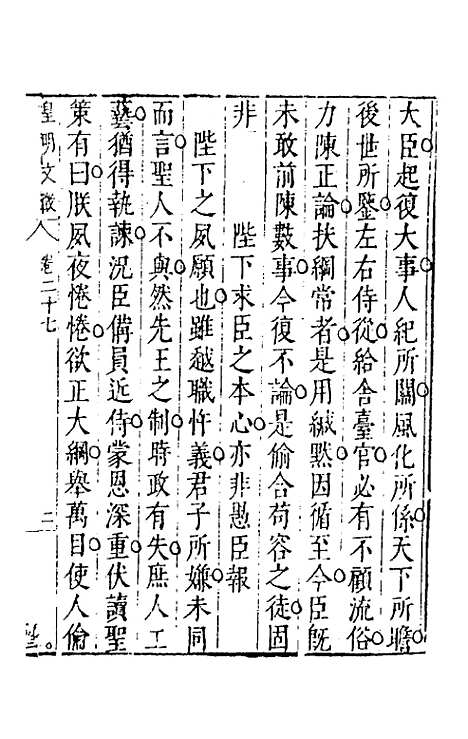 大臣起復大事人紀所關風化所係天下所瞻
後世所鑒左右侍從給舍臺官必有不顧流俗
力陳正論扶綱常者是用緘默因循至今臣旣
未敢前陳數事今復不論是偷合苟容之徒固
非　陛下求臣之本心亦非愚臣報
陛下之夙願也雖越職忤義君子所嫌未同
而言聖人不與然先王之制時政有失庶人工
藝猶得執諫況臣備員近侍蒙恩深重伏讀聖
策有曰朕夙夜惓惓欲正大綱舉萬目使人倫
皇明文徵 卷二十七 二